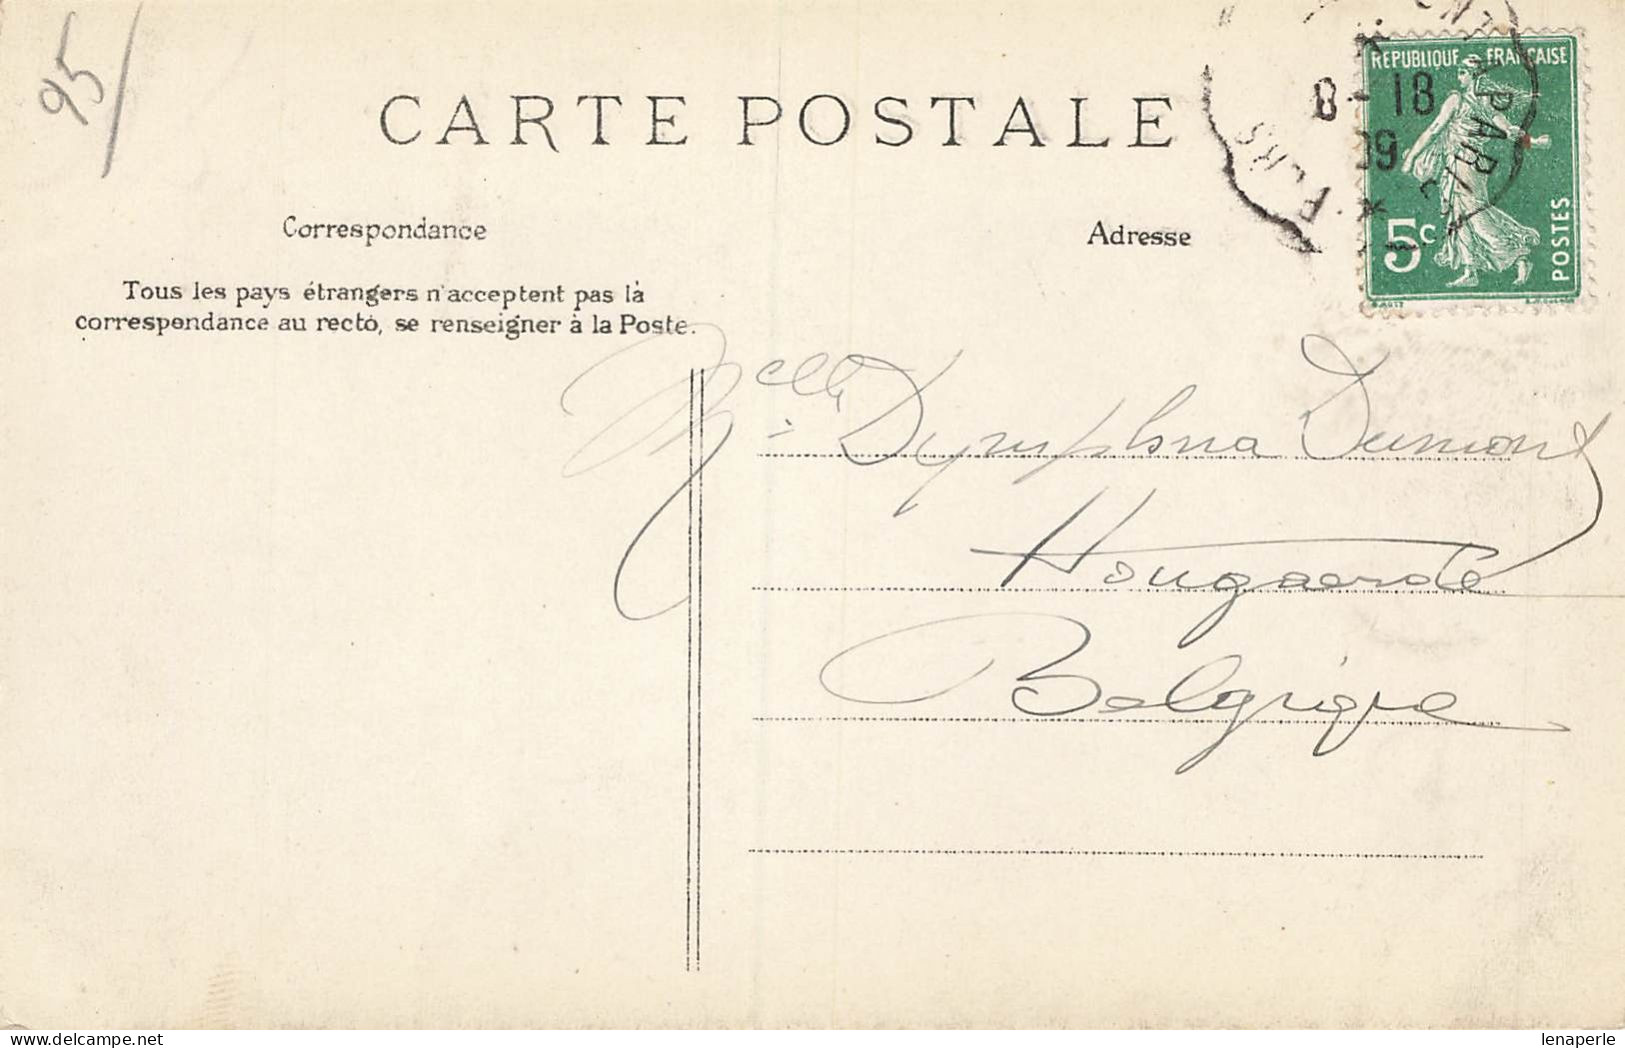 95
CARTE POSTALE
RÉPUBLIQUE FRANÇAISE
8-18
09
PARIS
5c
POSTES
Correspondance
Adresse
Tous les pays étrangers n'acceptent pas la
correspondance au recto, se renseigner à la Poste.
Melle Dymphna Dumont
Hougaerde
Belgique
lenaperle